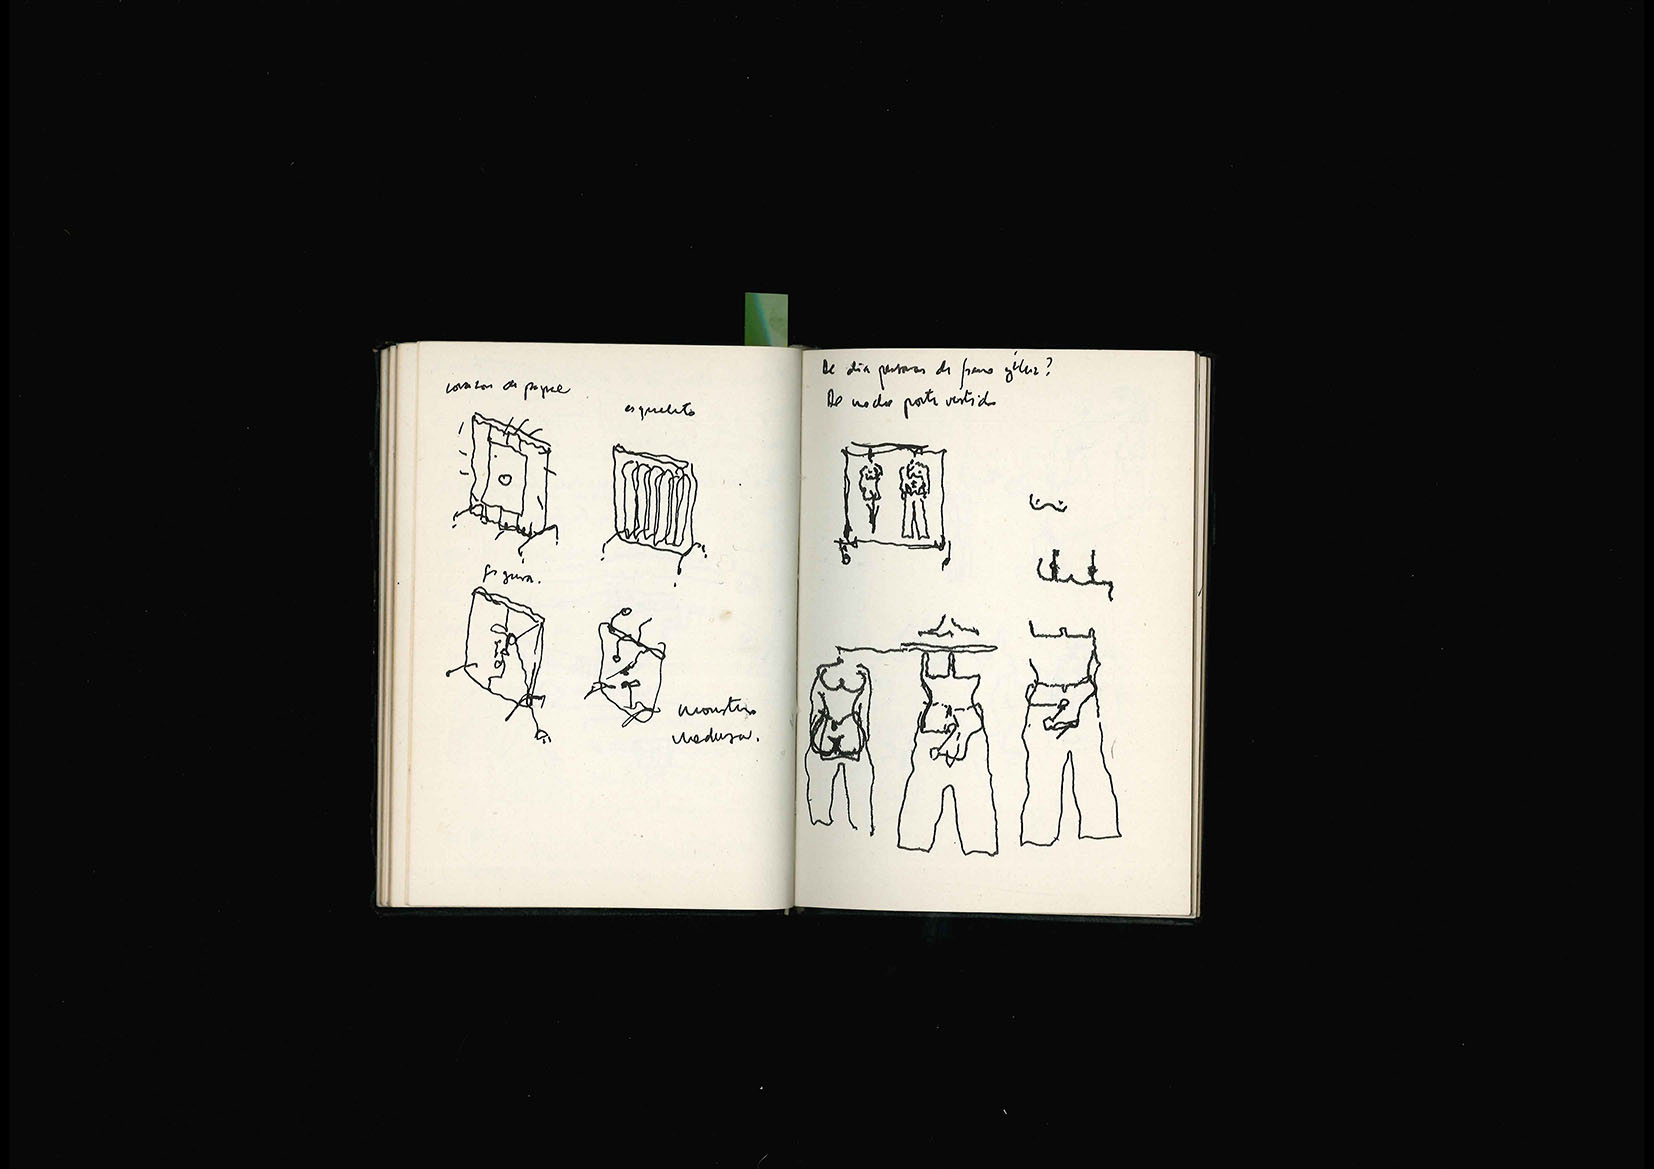 corazon de papel
esqueleto
figura.
monstruo
medusa.
De dia personas de
De noche porta vestido